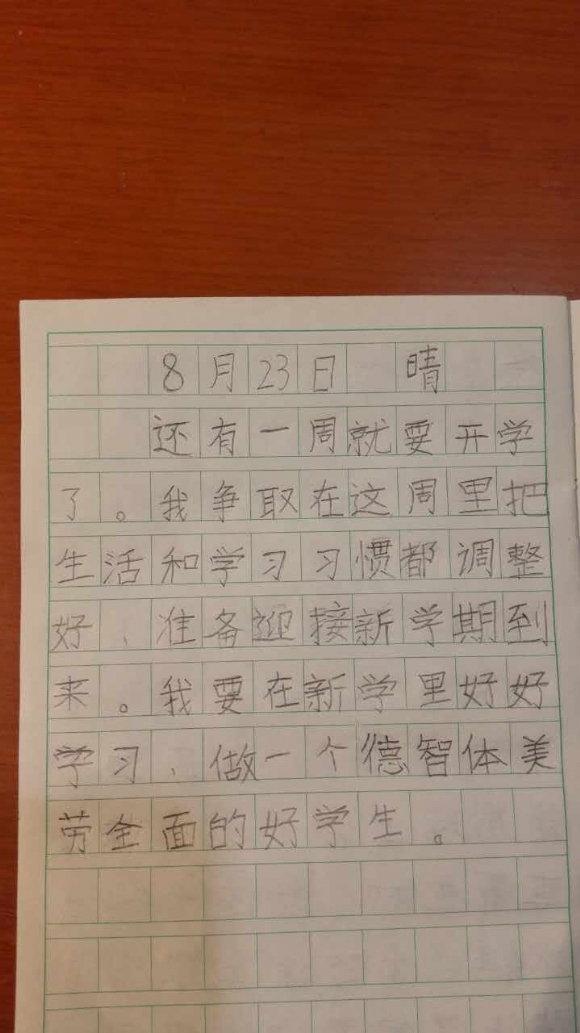 8月23日 晴
还有一周就要开学
了。我争取在这周里把
生活和学习习惯都调整
好、准备迎接新学期到
来。我要在新学里好好
学习、做一个德智体美
劳全面的好学生。